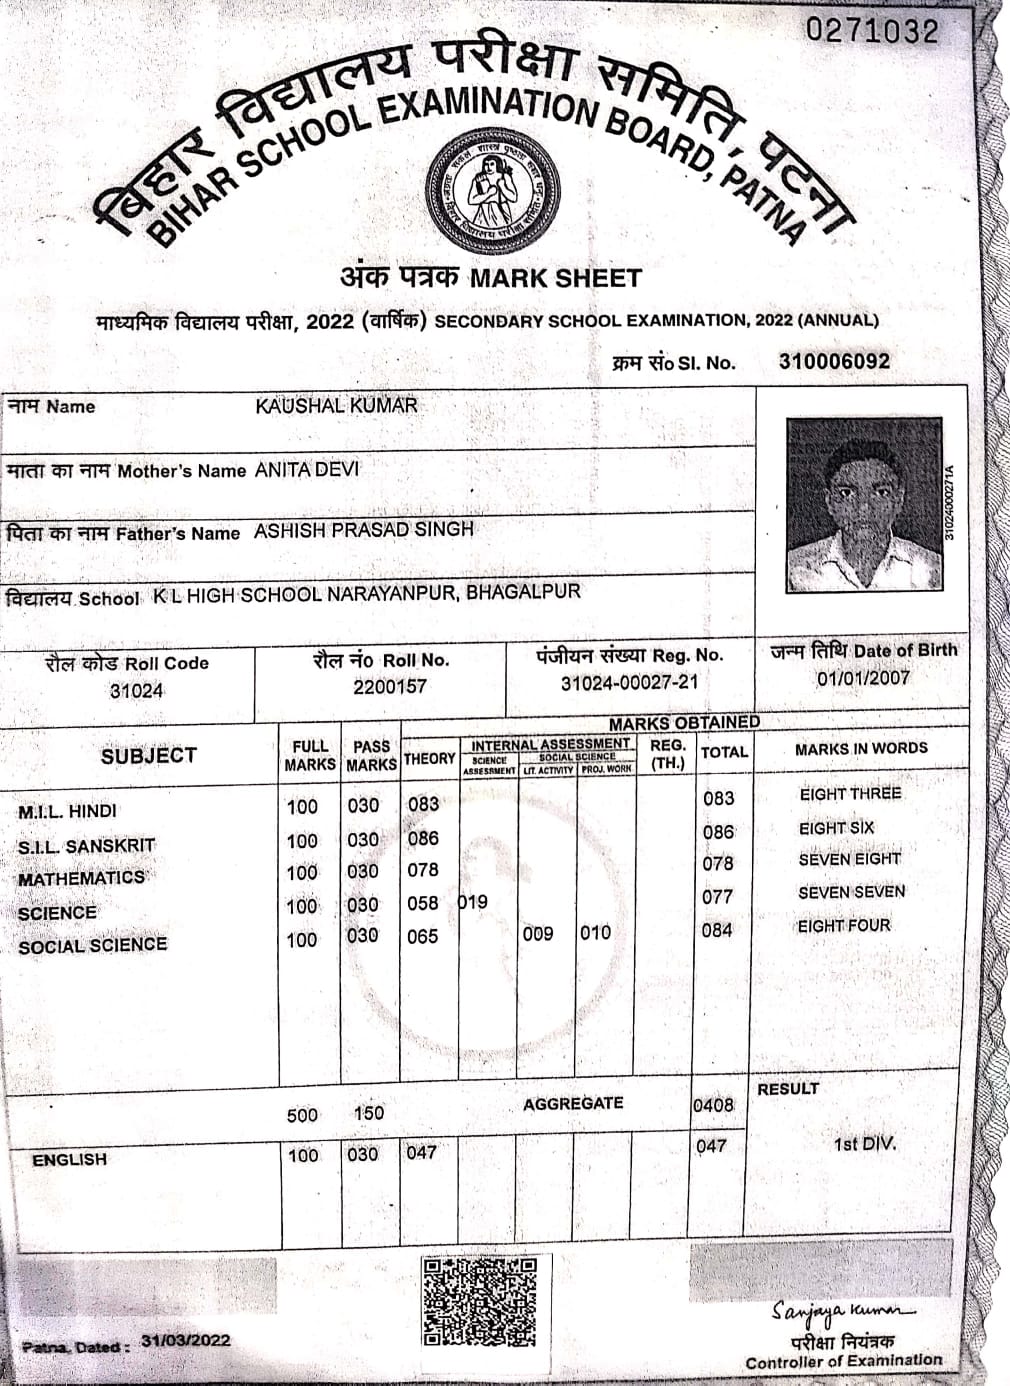 0271032
बिहार विद्यालय परीक्षा समिति, पटना
BIHAR SCHOOL EXAMINATION BOARD, PATNA
अंक पत्रक MARK SHEET
माध्यमिक विद्यालय परीक्षा, 2022 (वार्षिक) SECONDARY SCHOOL EXAMINATION, 2022 (ANNUAL)
क्रम सं० Sl. No. 310006092
नाम Name KAUSHAL KUMAR
माता का नाम Mother's Name ANITA DEVI
पिता का नाम Father's Name ASHISH PRASAD SINGH
विद्यालय School K L HIGH SCHOOL NARAYANPUR, BHAGALPUR
31024000271A
रौल कोड Roll Code रौल नं० Roll No. पंजीयन संख्या Reg. No. जन्म तिथि Date of Birth
31024 2200157 31024-00027-21 01/01/2007
MARKS OBTAINED
SUBJECT FULL MARKS PASS MARKS THEORY INTERNAL ASSESSMENT REG. (TH.) TOTAL MARKS IN WORDS
SCIENCE ASSESSMENT SOCIAL SCIENCE
LIT. ACTIVITY PROJ. WORK
M.I.L. HINDI 100 030 083 083 EIGHT THREE
S.I.L. SANSKRIT 100 030 086 086 EIGHT SIX
MATHEMATICS 100 030 078 078 SEVEN EIGHT
SCIENCE 100 030 058 019 077 SEVEN SEVEN
SOCIAL SCIENCE 100 030 065 009 010 084 EIGHT FOUR
500 150 AGGREGATE 0408 RESULT
ENGLISH 100 030 047 047 1st DIV.
Sanjaya Kumar
Patna, Dated : 31/03/2022
परीक्षा नियंत्रक
Controller of Examination